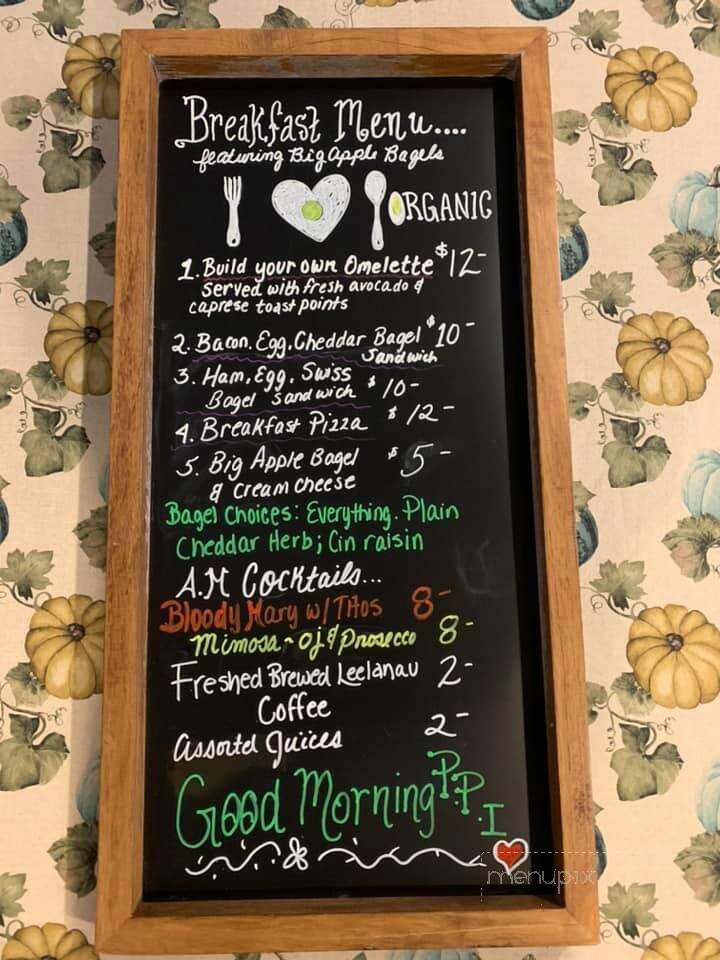 Breakfast Menu....
featuring Big Apple Bagels
ORGANIC
1. Build your own Omelette $12-
Served with fresh avocado &
caprese toast points
2. Bacon, Egg, Cheddar Bagel $10-
Sandwich
3. Ham, Egg, Swiss
Bagel Sandwich $10-
4. Breakfast Pizza $12-
5. Big Apple Bagel $5-
& cream cheese
Bagel Choices: Everything. Plain
Cheddar Herb; Cin raisin
A.M Cocktails...
Bloody Mary w/ Titos 8-
Mimosa - oj & prosecco 8-
Freshed Brewed Leelanau 2-
Coffee
Assorted Juices 2-
Good Morning P.P.I
menupix